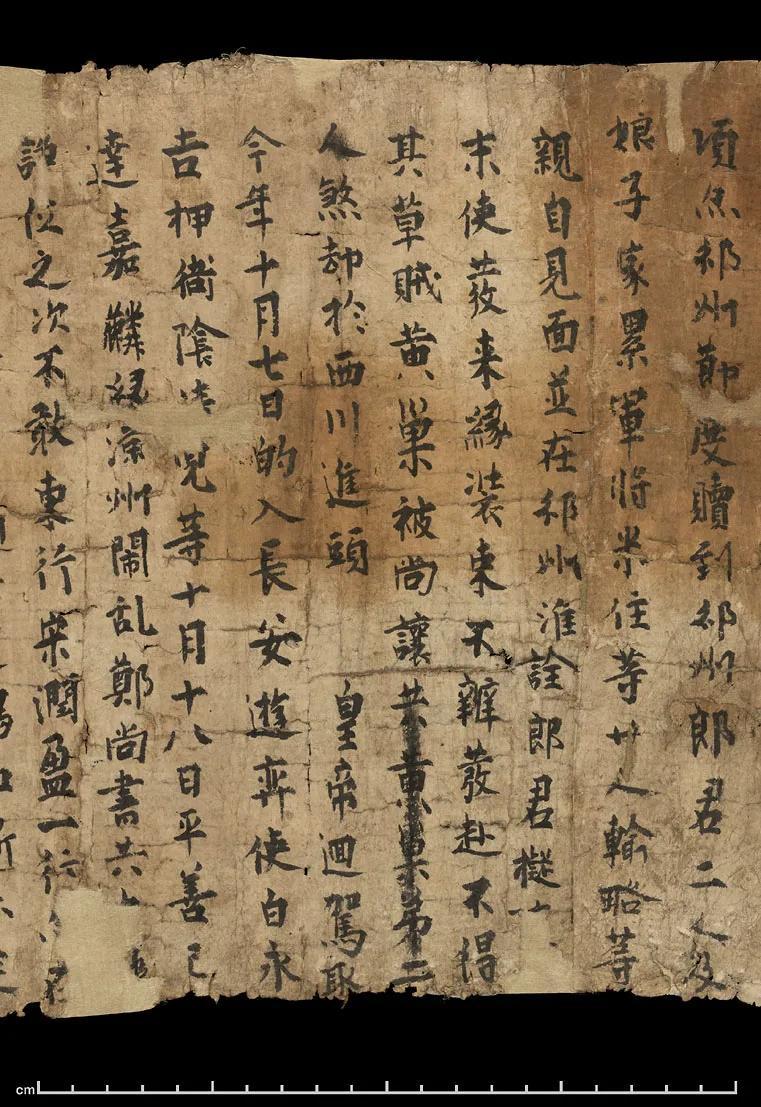 邠州節度贖到邠州郎君二人及
娘子家累軍將米住等廿人輪略等
親自見面並在邠州淮詮郎君擬十
末使發来緣裝束不辦發赴不得
其草賊黃巢被尚讓共黃巢弟二
人煞却於西川進頭 皇帝迴駕取
今年十月七日的入長安遊弈使白永
吉押衙陰清兒等十月十八日平善已
達嘉麟緣涼州鬧乱鄭尚書共
諍位之次不敢東行宋潤盈一行